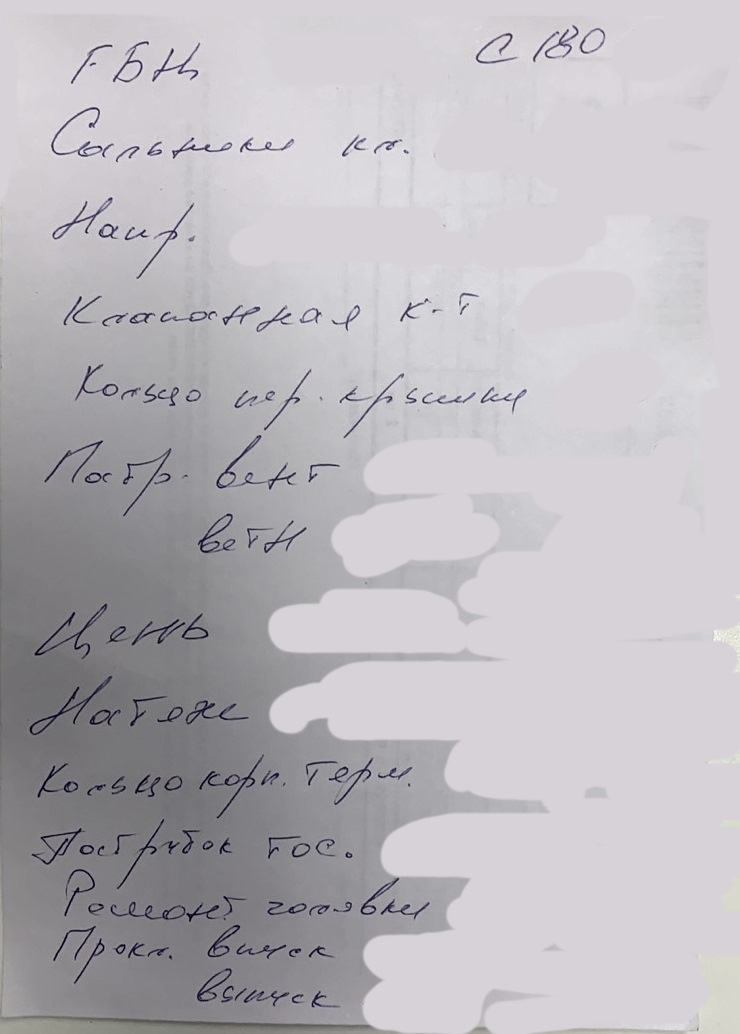 ГБЦ С 180
Сальники кл.
Напр.
Клапанная к-т
Кольцо пер. крышки
Патр. вент
ветн
Цепь
Натяж
Кольцо корп. терм.
Патрубок тос.
Ремонт головки
Прокл. впуск
выпуск